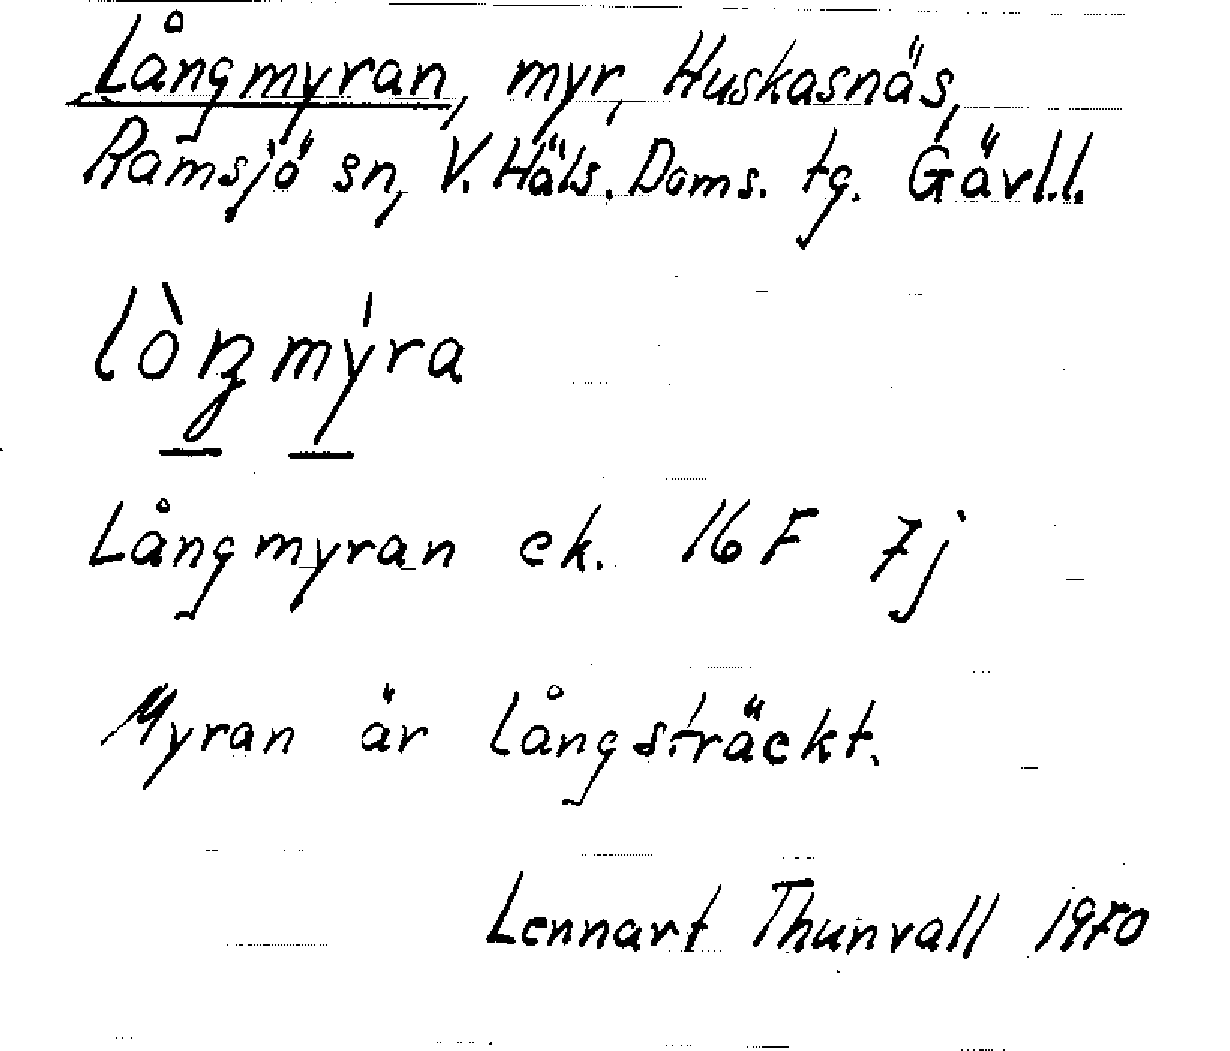 Långmyran, myr, Huskasnäs,
Ramsjö sn, V. Häls. Doms. tg. Gävl.l.
lòŋmýra
Långmyran ek. 16 F 7j
Myran är långsträckt.
Lennart Thunvall 1970